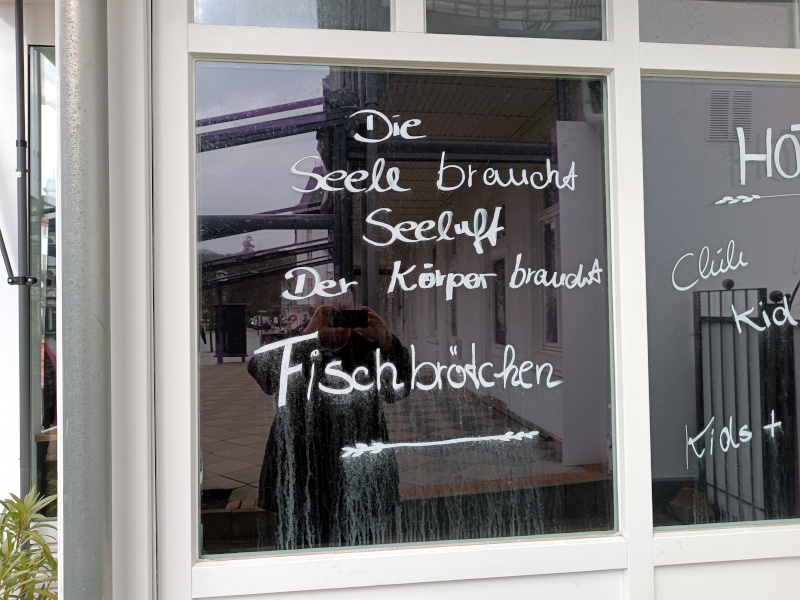 Die
Seele braucht
Seeluft
Der Körper braucht
Fischbrötchen
HO
Chili
Kid
Kids +